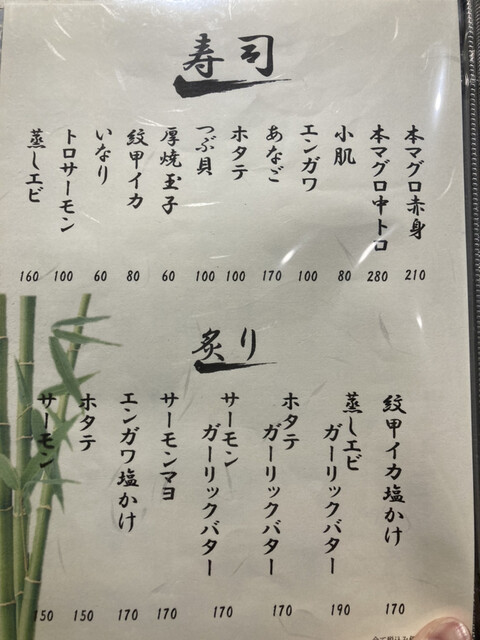 寿司
本マグロ赤身 210
本マグロ中トロ 280
小肌 80
エンガワ 100
あなご 170
ホタテ 100
つぶ貝 100
厚焼玉子 60
紋甲イカ 80
いなり 60
トロサーモン 100
蒸しエビ 160
炙り
紋甲イカ塩かけ 170
蒸しエビ
ガーリックバター 190
ホタテ
ガーリックバター 170
サーモン
ガーリックバター 170
サーモンマヨ 170
エンガワ塩かけ 170
ホタテ 150
サーモン 150